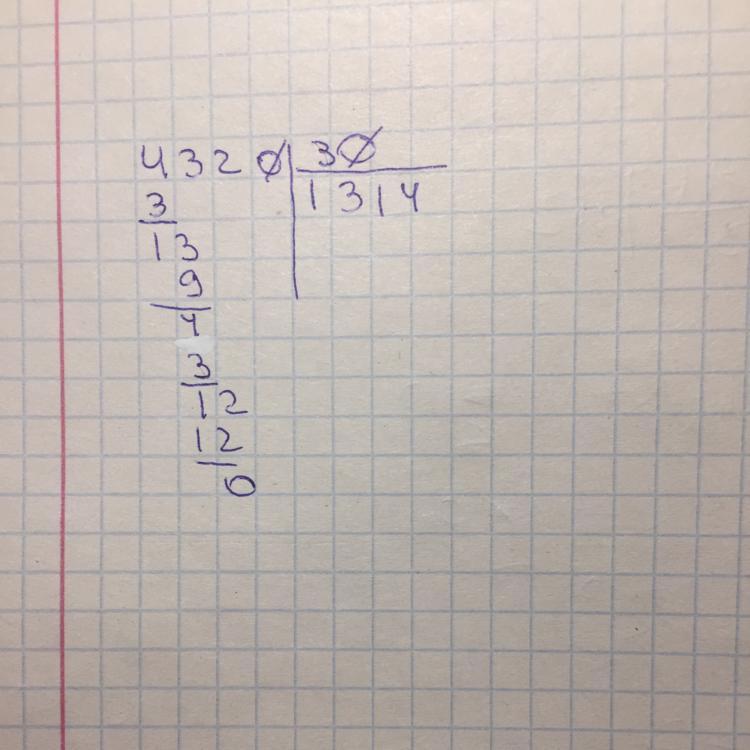 4320 30
3 1314
13
9
4
3
12
12
0